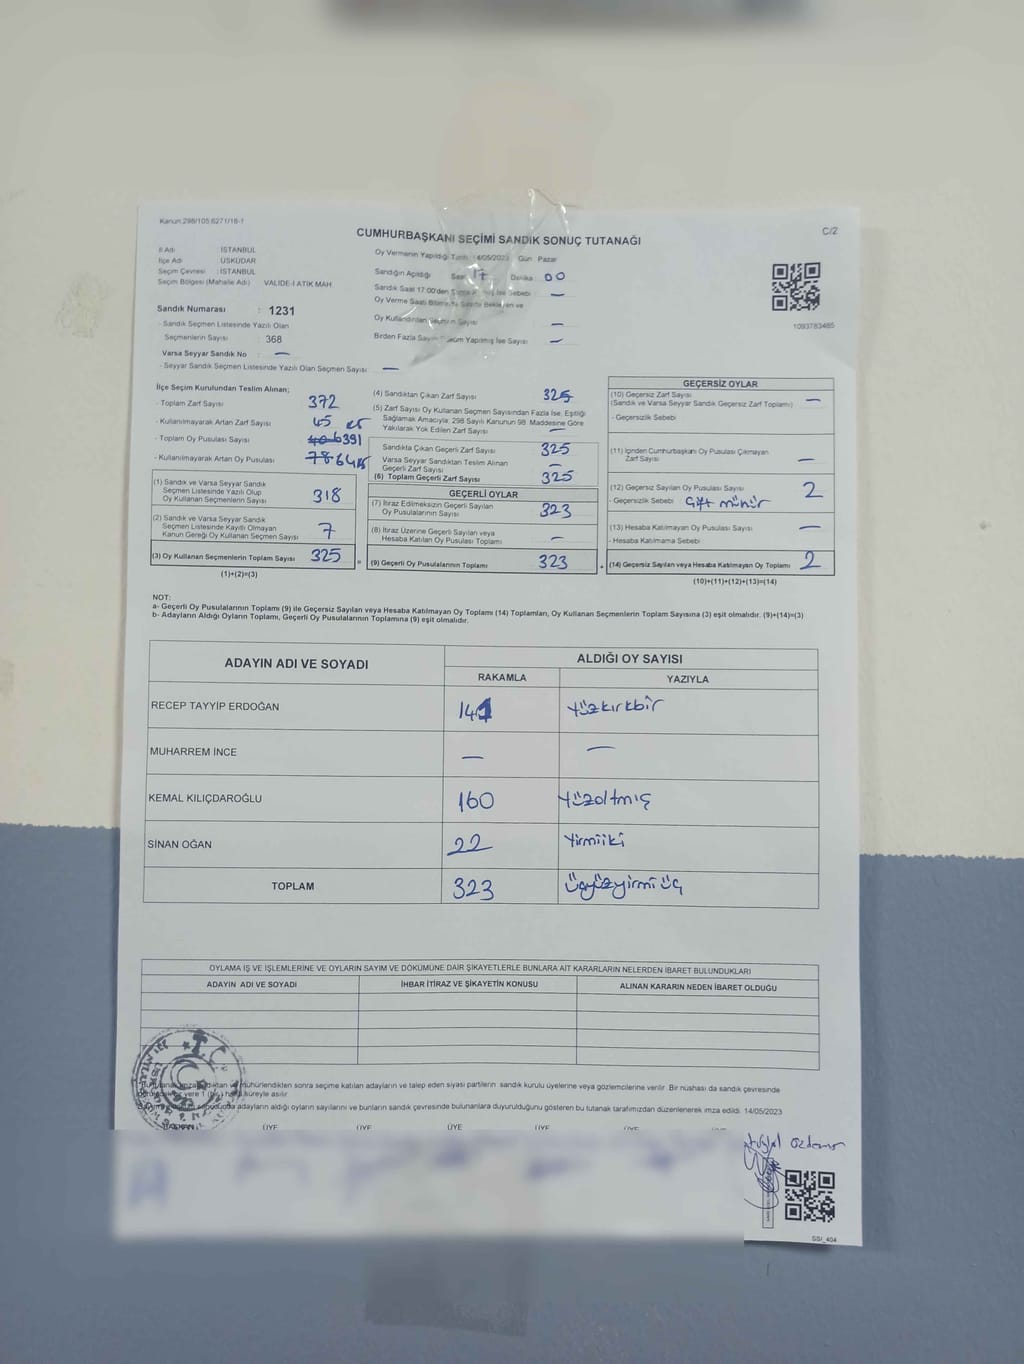 Kanun:298/105,6271/16-1
C/2
CUMHURBAŞKANI SEÇİMİ SANDIK SONUÇ TUTANAĞI
İl Adı : İSTANBUL
İlçe Adı : ÜSKÜDAR
Seçim Çevresi : İSTANBUL
Seçim Bölgesi (Mahalle Adı) VALİDE-İ ATİK MAH
Sandık Numarası : 1231
- Sandık Seçmen Listesinde Yazılı Olan
Seçmenlerin Sayısı : 368
Varsa Seyyar Sandık No : —
- Seyyar Sandık Seçmen Listesinde Yazılı Olan Seçmen Sayısı —
Oy Vermenin Yapıldığı 14/05/2023 Gün Pazar
Sandığın Açıldığı Saat 17 Dakika 00
Sandık Saat 17:00'den İse Sebebi —
Oy Verme Saati Bekleyen ve
Oy Kullandırılan Seçmen Sayısı —
Birden Fazla Yapılmış İse Sayısı —
1093783485
İlçe Seçim Kurulundan Teslim Alınan;
- Toplam Zarf Sayısı 372
- Kullanılmayarak Artan Zarf Sayısı 45
- Toplam Oy Pusulası Sayısı 406 391
- Kullanılmayarak Artan Oy Pusulası 78 64
(1) Sandık ve Varsa Seyyar Sandık
Seçmen Listesinde Yazılı Olup
Oy Kullanan Seçmenlerin Sayısı 318
(2) Sandık ve Varsa Seyyar Sandık
Seçmen Listesinde Kayıtlı Olmayan
Kanun Gereği Oy Kullanan Seçmen Sayısı 7
(3) Oy Kullanan Seçmenlerin Toplam Sayısı 325
(1)+(2)=(3)
(4) Sandıktan Çıkan Zarf Sayısı 325
(5) Zarf Sayısı Oy Kullanan Seçmen Sayısından Fazla İse, Eşitliği
Sağlamak Amacıyla; 298 Sayılı Kanunun 98. Maddesine Göre
Yakılarak Yok Edilen Zarf Sayısı —
Sandıkta Çıkan Geçerli Zarf Sayısı 325
Varsa Seyyar Sandıktan Teslim Alınan
Geçerli Zarf Sayısı —
(6) Toplam Geçerli Zarf Sayısı 325
GEÇERLİ OYLAR
(7) İtiraz Edilmeksizin Geçerli Sayılan
Oy Pusulalarının Sayısı 323
(8) İtiraz Üzerine Geçerli Sayılan veya
Hesaba Katılan Oy Pusulası Toplamı —
(9) Geçerli Oy Pusulalarının Toplamı 323
GEÇERSİZ OYLAR
(10) Geçersiz Zarf Sayısı
(Sandık ve Varsa Seyyar Sandık Geçersiz Zarf Toplamı) —
- Geçersizlik Sebebi
(11) İçinden Cumhurbaşkanı Oy Pusulası Çıkmayan
Zarf Sayısı —
(12) Geçersiz Sayılan Oy Pusulası Sayısı 2
- Geçersizlik Sebebi Çift mühür
(13) Hesaba Katılmayan Oy Pusulası Sayısı —
- Hesaba Katılmama Sebebi
(14) Geçersiz Sayılan veya Hesaba Katılmayan Oy Toplamı 2
(10)+(11)+(12)+(13)=(14)
NOT:
a- Geçerli Oy Pusulalarının Toplamı (9) ile Geçersiz Sayılan veya Hesaba Katılmayan Oy Toplamı (14) Toplamları, Oy Kullanan Seçmenlerin Toplam Sayısına (3) eşit olmalıdır. (9)+(14)=(3)
b- Adayların Aldığı Oyların Toplamı, Geçerli Oy Pusulalarının Toplamına (9) eşit olmalıdır.
ADAYIN ADI VE SOYADI ALDIĞI OY SAYISI
RAKAMLA YAZIYLA
RECEP TAYYİP ERDOĞAN 141 Yüzkırkbir
MUHARREM İNCE — —
KEMAL KILIÇDAROĞLU 160 Yüzaltmış
SİNAN OĞAN 22 Yirmiiki
TOPLAM 323 Üçyüzyirmiüç
OYLAMA İŞ VE İŞLEMLERİNE VE OYLARIN SAYIM VE DÖKÜMÜNE DAİR ŞİKAYETLERLE BUNLARA AİT KARARLARIN NELERDEN İBARET BULUNDUKLARI
ADAYIN ADI VE SOYADI İHBAR İTİRAZ VE ŞİKAYETİN KONUSU ALINAN KARARIN NEDEN İBARET OLDUĞU
T.C.
mühürlendikten sonra seçime katılan adayların ve talep eden siyasi partilerin sandık kurulu üyelerine veya gözlemcilerine verilir. Bir nüshası da sandık çevresinde
yere 1 (bir) hafta süreyle asılır.
adayların aldığı oyların sayılarını ve bunların sandık çevresinde bulunanlara duyurulduğunu gösteren bu tutanak tarafımızdan düzenlenerek imza edildi. 14/05/2023
BAŞKAN ÜYE ÜYE ÜYE ÜYE ÜYE
Özdemir
SSI_404